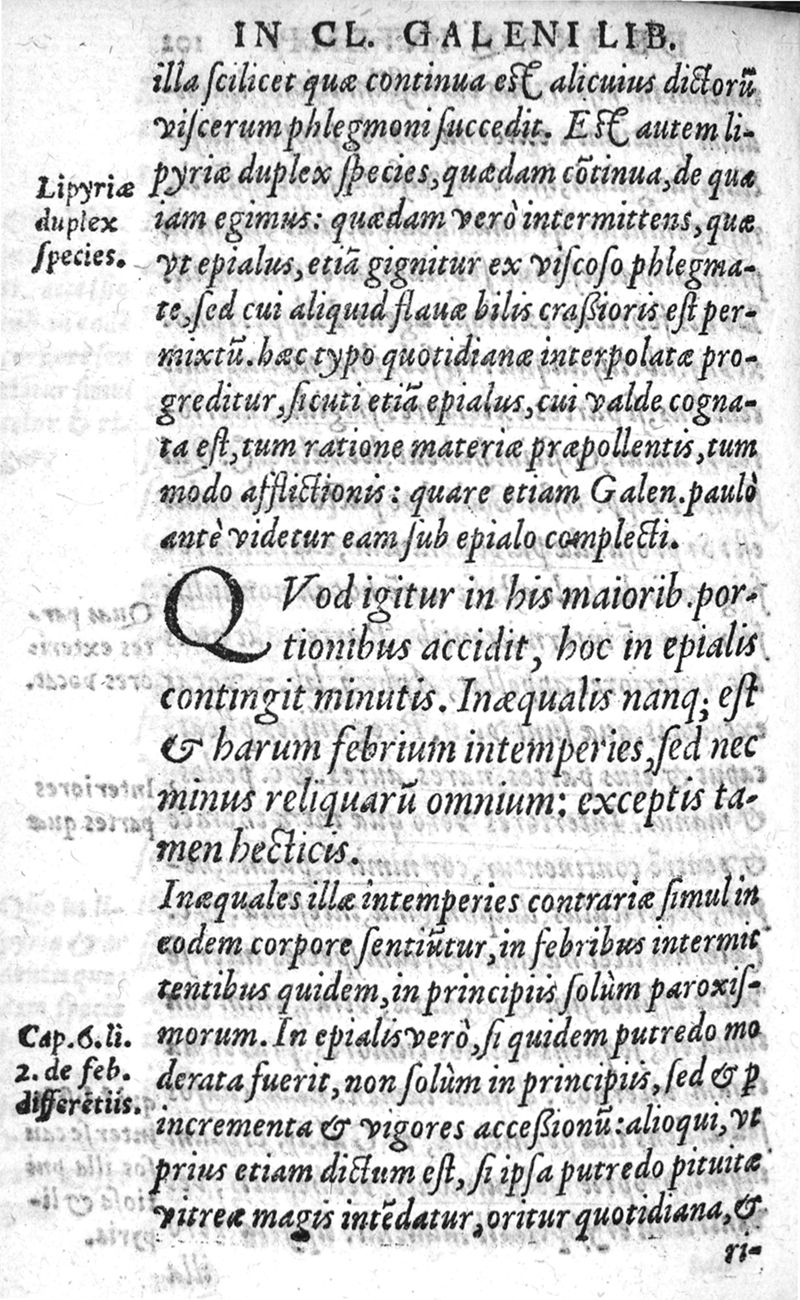 IN CL. GALENI LIB.
illa ſcilicet quæ continua eſt alicuius dictorũ
viſcerum phlegmoni ſuccedit. Eſt autem li-
pyriæ duplex ſpecies, quædam cõtinua, de qua
iam egimus: quædam verò intermittens, quæ
vt epialus, etiã gignitur ex viſcoſo phlegma-
te, ſed cui aliquid flauæ bilis craßioris eſt per-
mixtũ. hæc typo quotidianæ interpolatæ pro-
greditur, ſicuti etiã epialus, cui valde cogna-
ta eſt, tum ratione materiæ præpollentis, tum
modo afflictionis: quare etiam Galen. paulò
antè videtur eam ſub epialo complecti.
Lipyriæ
duplex
ſpecies.
QVod igitur in his maiorib. por-
tionibus accidit, hoc in epialis
contingit minutis. Inæqualis nanq; eſt
& harum febrium intemperies, ſed nec
minus reliquarũ omnium: exceptis ta-
men hecticis.
Inæquales illæ intemperies contrariæ ſimul in
eodem corpore ſentiũtur, in febribus intermit
tentibus quidem, in principiis ſolùm paroxiſ-
morum. In epialis verò, ſi quidem putredo mo
derata fuerit, non ſolùm in principiis, ſed & ꝑ
incrementa & vigores acceßionũ: alioqui, vt
prius etiam dictum eſt, ſi ipſa putredo pituitæ
vitreæ magis intẽdatur, oritur quotidiana, &
Cap. 6. li.
2. de feb.
differẽtiis.
ri-